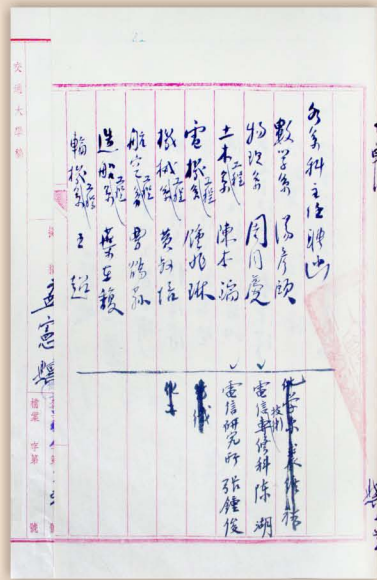 各系科主任聘函
數学系 湯彦頤
物理系 周同慶
土木工程系 陳本端
電機工程系 鍾兆琳
機械工程系 黄叔培
航空工程系 曹鶴蓀
造船工程系 葉在馥
輪機工程系 王超
電信專修科 陳湖
電信研究所 張鍾俊
交通大學稿
檔案 字第 號